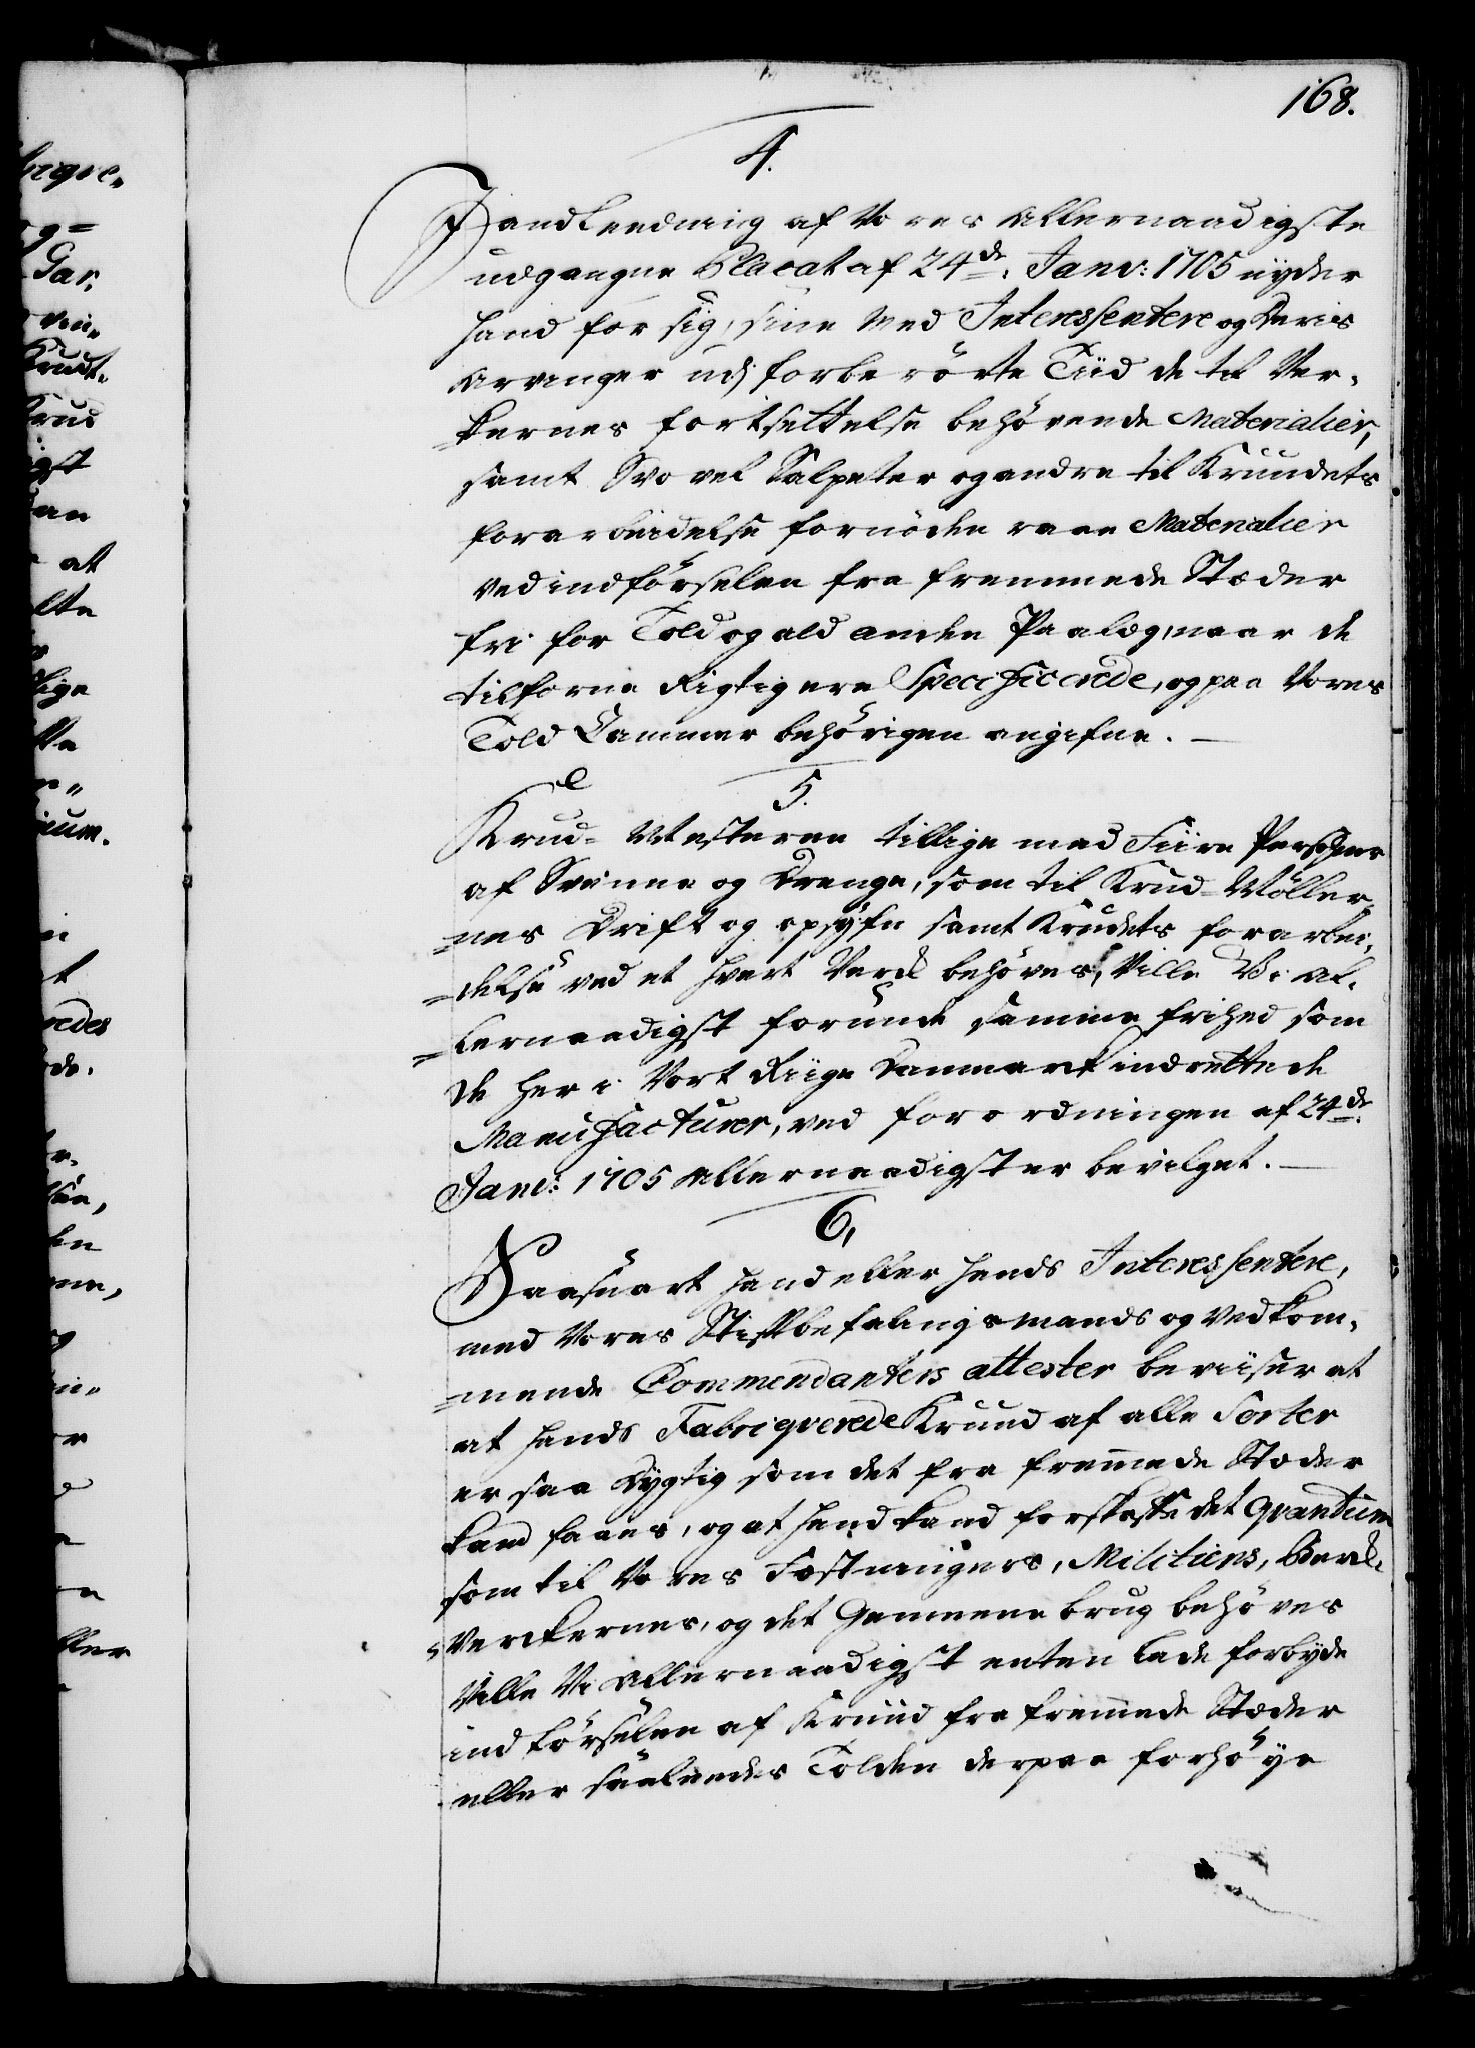 168.
4.
I andleedning af Vores Allernaadigste
udgangne Placat af 24de. Janv: 1705 nyder
hand for sig, sine Med Interessentere og deris
Arvinger udj forberörte Tiid de til Ver-
=kernes fortsettelse behövende Materialier,
samt Svovel Salpeter og andre til Kruudets
forarbeidelse fornödene raae Materialier
ved indförselen fra fremmede Stæder
fri for Told og ald anden Paalæg, naar de
tilforne Rigtig ere Specificerede, og paa Vores
Told Cammer behörigen angifne. —
5.
Krud-Mesteren tillige med Fiire Persohner
af Svenne og Drenge, som til Krud-Möller-
=nes Drift og opsyfn samt Krudets forarbei-
=delse ved et hvert Verck behöves, Ville Vi al-
=lernaadigst forunde samme frihed som
de her i Vort Riige Danmarck indrettede
Manufacturer, ved forordningen af 24de.
Janv: 1705 Allernaadigst er bevilget. —
6,
Saasnart hand eller hands Interessentere,
med Vores Stiftbefalingsmands og vedkom-
=mende Commendanters attester beviiser at
at hands Fabriqverede Kruud af alle Sorter
er saa dygtig som det fra fremmede Stæder
kand faaes, og at hand kand forskaffe det qvantum
som til Vores Fæstningers, Militiens, Berck-
=Verckernes, og det Gemeene brug behöves
Ville Vi Allernaadigst enten lade forbyde
indförselen af Kruud fra fremmede Stæder
eller saaledes Tolden derpaa forhöye